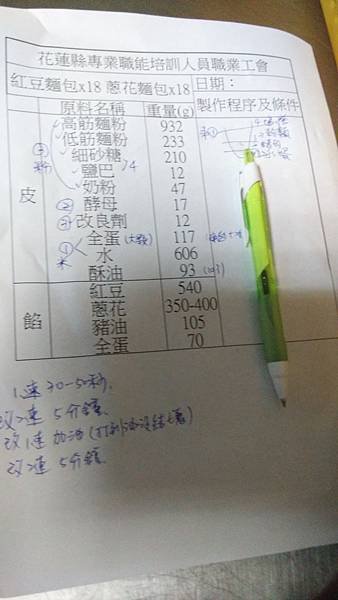 花蓮縣專業職能培訓人員職業工會
紅豆麵包x18 蔥花麵包x18 日期：
原料名稱 重量(g) 製作程序及條件
皮
高筋麵粉 932
低筋麵粉 233
細砂糖 210
鹽巴 12
奶粉 47
酵母 17
改良劑 12
全蛋 117
水 606
酥油 93
餡
紅豆 540
蔥花 350-400
豬油 105
全蛋 70
1速 30-50秒.
改2速 5分鐘.
改1速 加油
改2速 5分鐘.